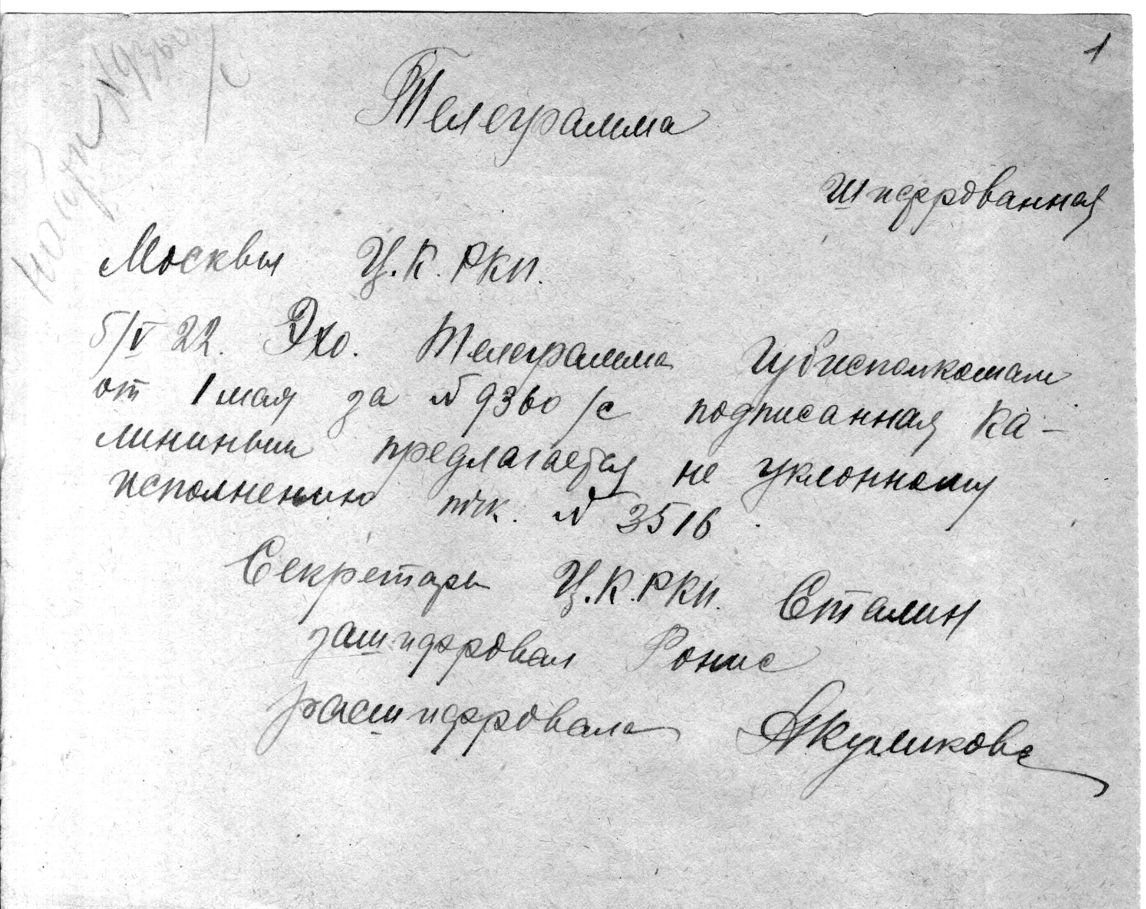 1
найти № 9360 /с
Телеграмма
Шифрованная
Москвы Ц.К. РКП.
5/V 22. Эхо. Телеграмма Губисполкомам
от 1 мая за № 9360 /с подписанная Ка-
лининым предлагается не уклонному
исполнению тчк. № 3516
Секретарь Ц.К.РКП. Сталин
зашифровал Ронис
расшифровала Акуликова